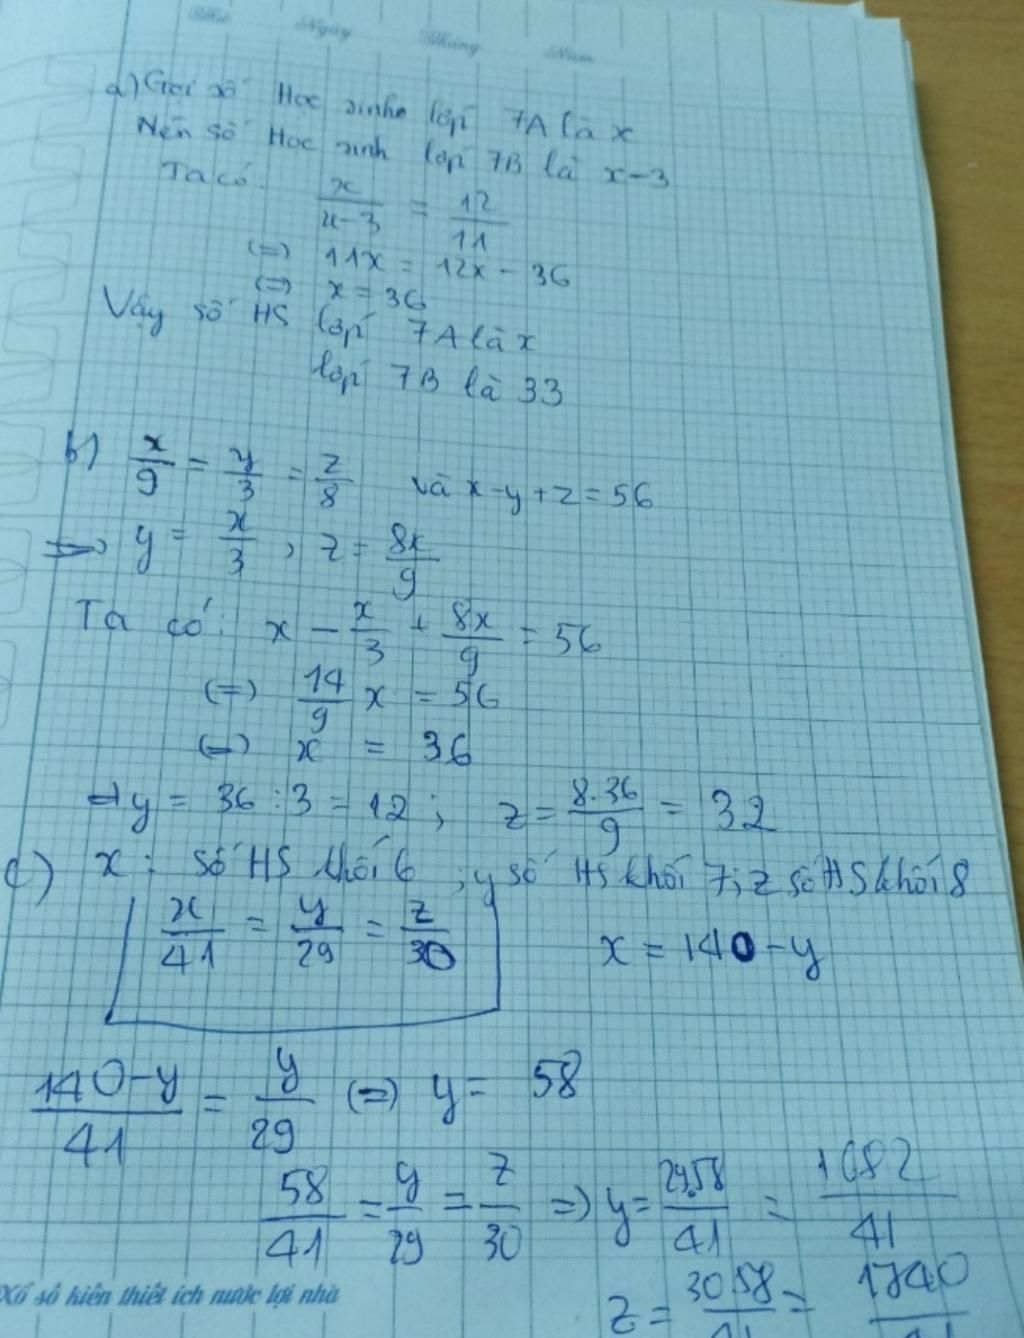 Thứ Ngày Tháng Năm
a) Gọi số Học sinh lớp 7A là x
Nên số Học sinh lớp 7B là x-3
Ta có x/x-3 = 12/11
(=) 11x = 12x - 36
(=) x = 36
Vậy số HS lớp 7A là x
lớp 7B là 33
b) x/9 = y/3 = z/8 và x-y+z=56
=> y = x/3 , z = 8x/9
Ta có: x - x/3 + 8x/9 = 56
(=) 14/9 x = 56
(=) x = 36
→ y = 36:3 = 12; z = 8.36/9 = 32
c) x: số HS khối 6; y số HS khối 7; z số HS khối 8
x/41 = y/29 = z/30 x = 140-y
140-y/41 = y/29 (=) y = 58
58/41 = y/29 = z/30 => y = 29.58/41 = 1682/41
z = 30.58/41 = 1740/41
Xổ số kiến thiết ích nước lợi nhà